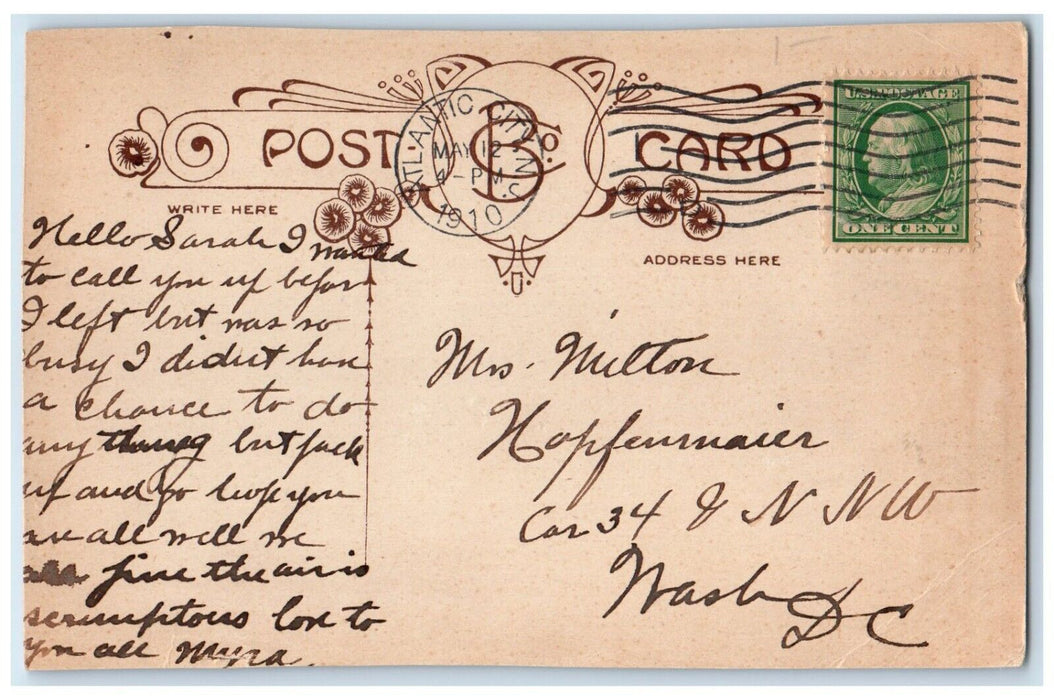 POST CARD
BCo.
ATLANTIC CITY, N.J.
MAY 12
4-PM
1910
U.S. POSTAGE
ONE CENT
WRITE HERE
ADDRESS HERE
Hello Sarah I wanted
to call you up before
I left but was so
busy I didn't have
a chance to do
any thing but pack
up and go hope you
are all well we
are fine the air is
scrumptous love to
you all Myra.
Mrs. Milton
Hopfenmaier
Cor 34 & N NW
Wash
DC